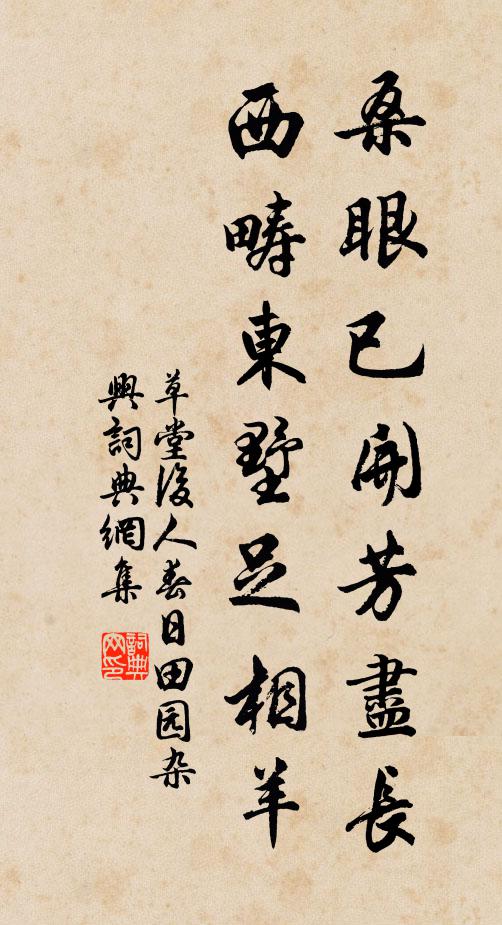 桑眼已開芳盡長
西疇東墅足相羊
草堂後人春日田园杂
興詞典網集
詞典
网印